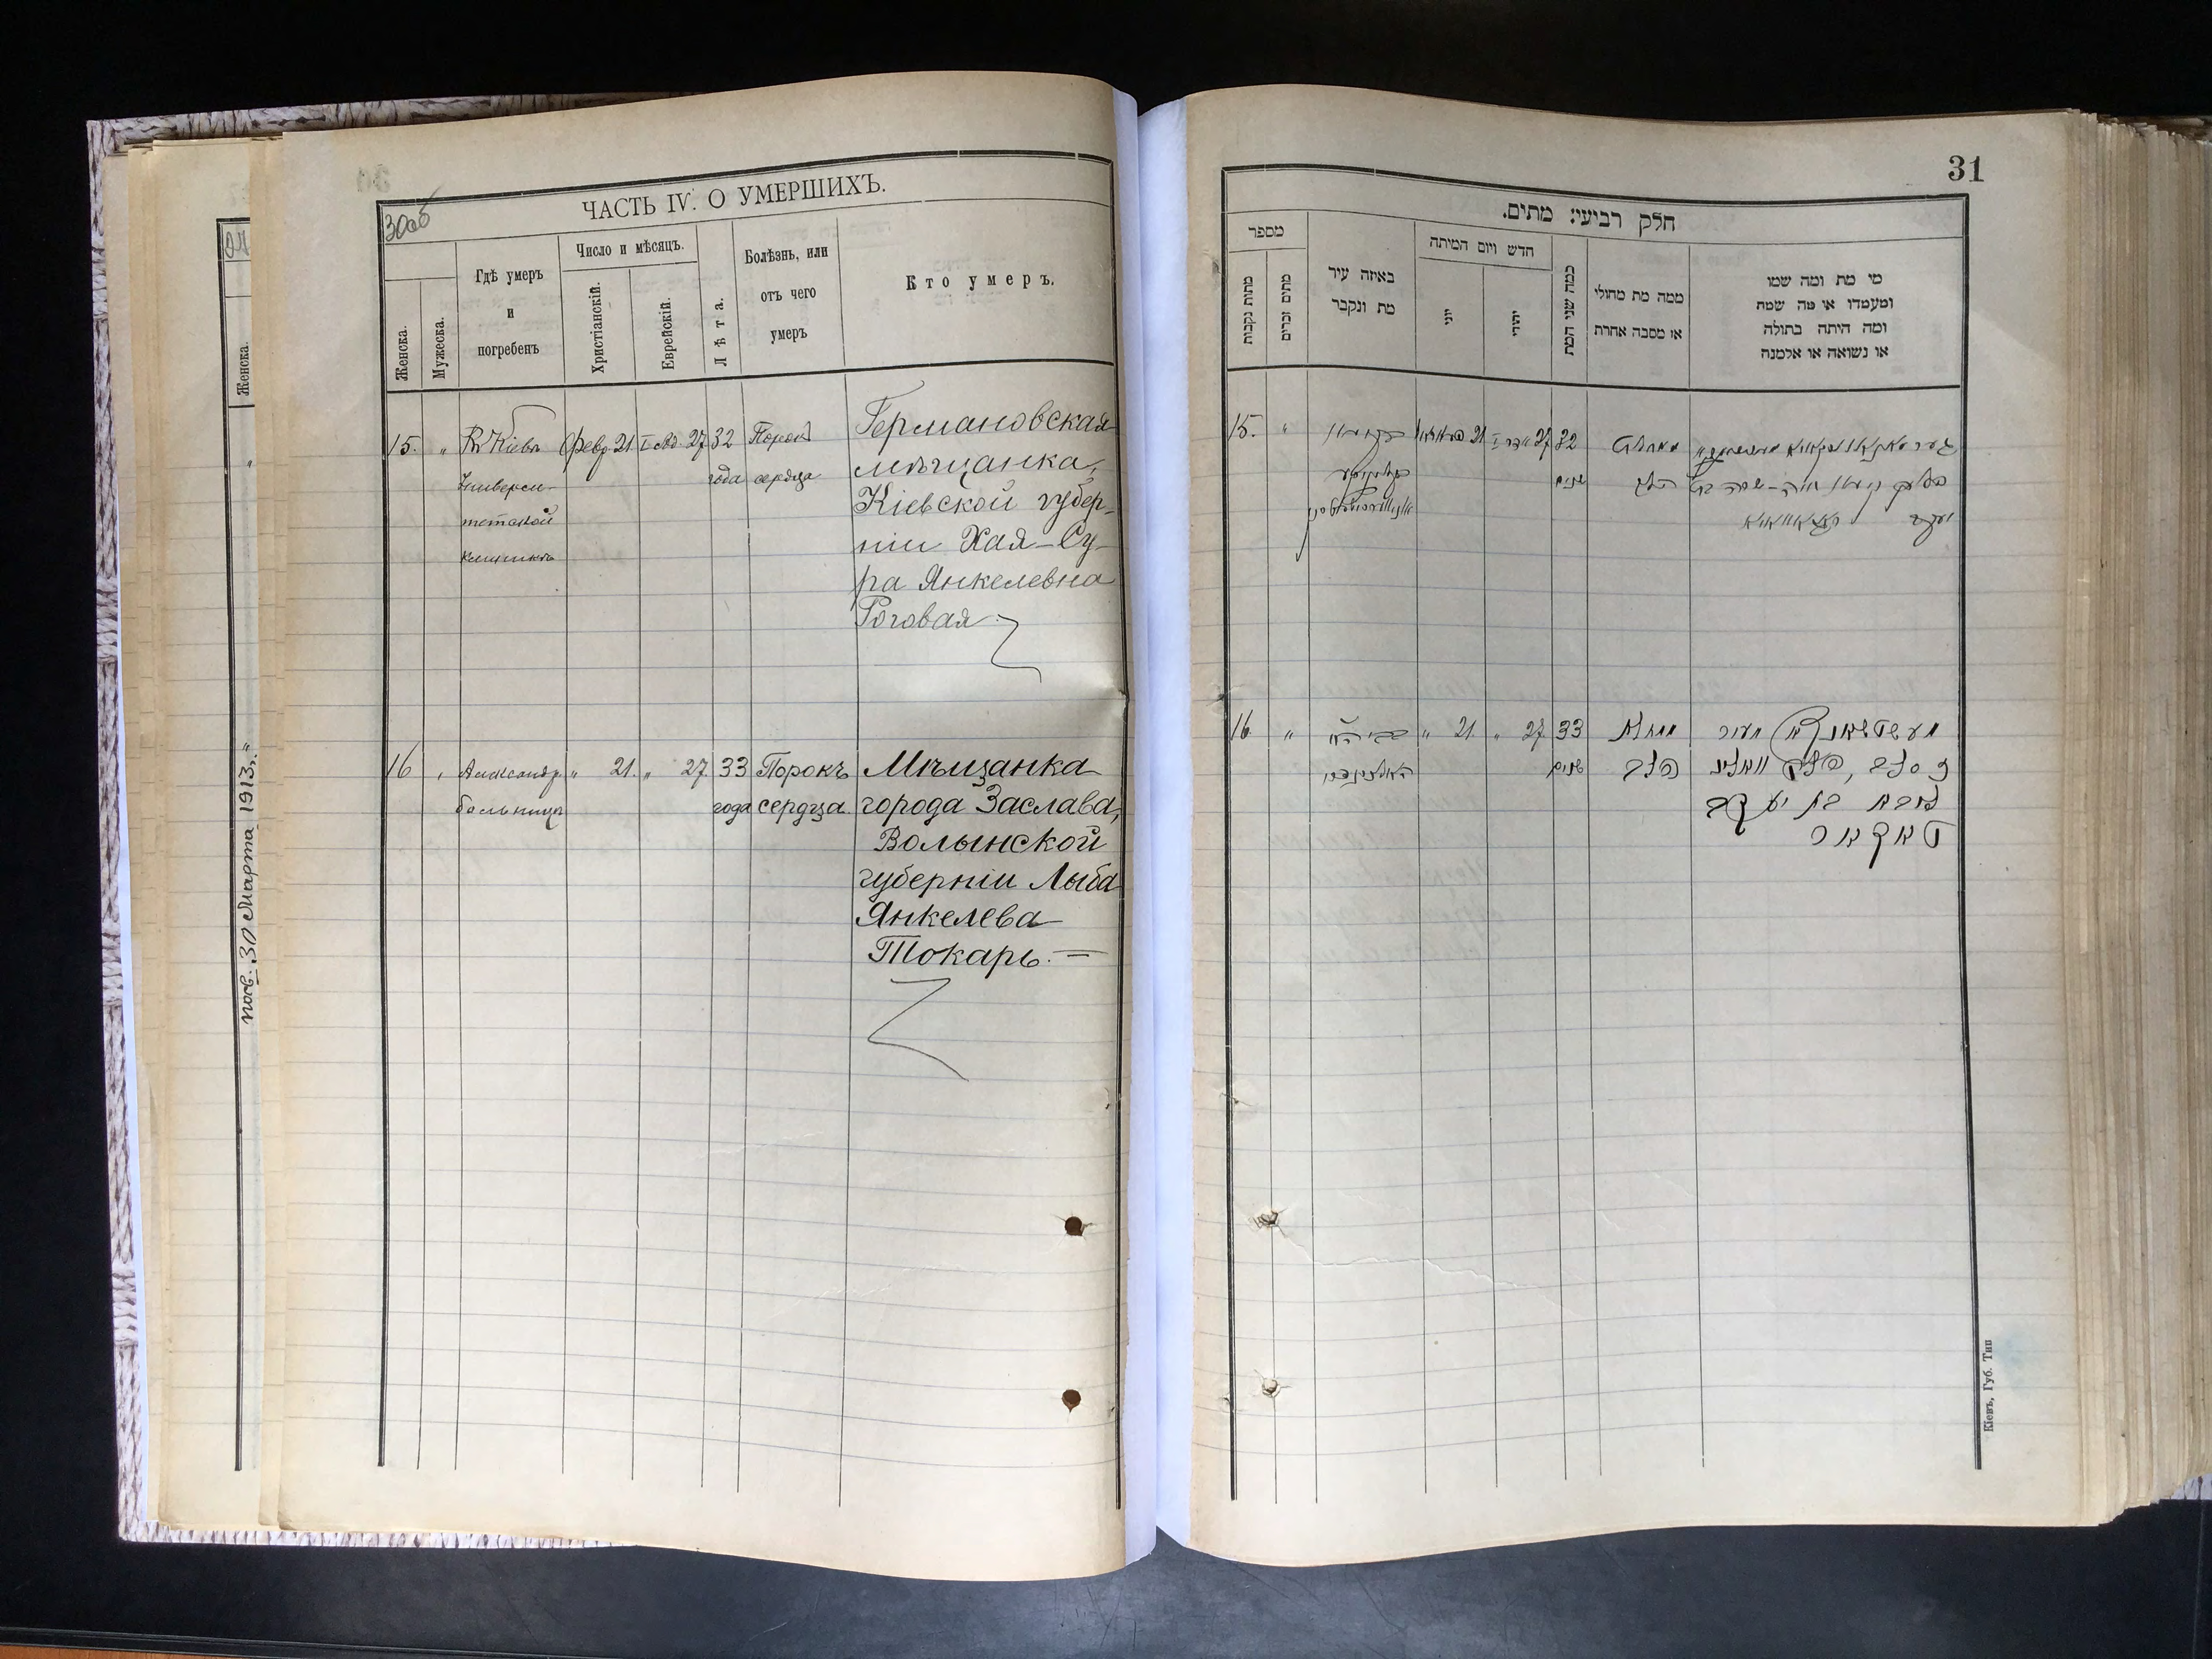 30об
ЧАСТЬ IV. О УМЕРШИХЪ.
Женска.
Мужеска.
Гдѣ умеръ
и
погребенъ
Число и мѣсяцъ.
Христіанскій.
Еврейскій.
Лѣта.
Болѣзнь, или
отъ чего
умеръ
Кто умеръ.
15. „ В Кіевѣ Февр. 21. I Ад. 27 32 Порокъ Германовская
Универси- года сердца мѣщанка,
тетской Кіевской губер-
клиникѣ ніи Хая-Су-
ра Янкелевна
Роговая
16 „ Александр. „ 21. „ 27 33 Порокъ Мѣщанка
больница года сердца. города Заслава,
Волынской
губерніи Лыба
Янкелева
Токарь.—
Женска.
„
посв. 30 Марта 1913 „
31
חלק רביעי: מתים.
מספר
מתות נקבות
מתים זכרים
באיזה עיר
מת ונקבר
חדש ויום המיתה
יוני
יהודי
כמה שני המת
ממה מת מחולי
או מסבה אחרת
מי מת ומה שמו
ומעמדו או מה שמה
ומה היתה בתולה
או נשואה או אלמנה
15. „ 21 אדר I 27 32 ממחלת
שנים הלב
16. „ „ 21 „ 27 33 מחלת מעשטשאנקא מעיר
שנים הלב זסלב, פלך וואלין
ליבא בת יעקב
טאקאר
Кіевъ, Губ. Тип